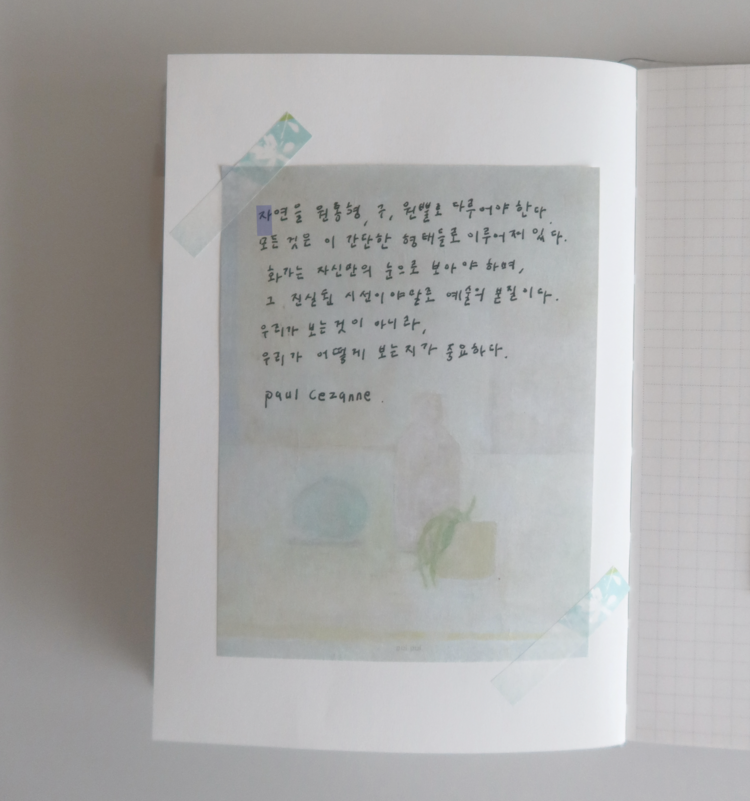 자연을 원통형, 구, 원뿔로 다루어야 한다.
모든 것은 이 간단한 형태들로 이루어져 있다.
화가는 자신만의 눈으로 보아야 하며,
그 진실된 시선이야말로 예술의 본질이다.
우리가 보는 것이 아니라,
우리가 어떻게 보는지가 중요하다.
paul cezanne.